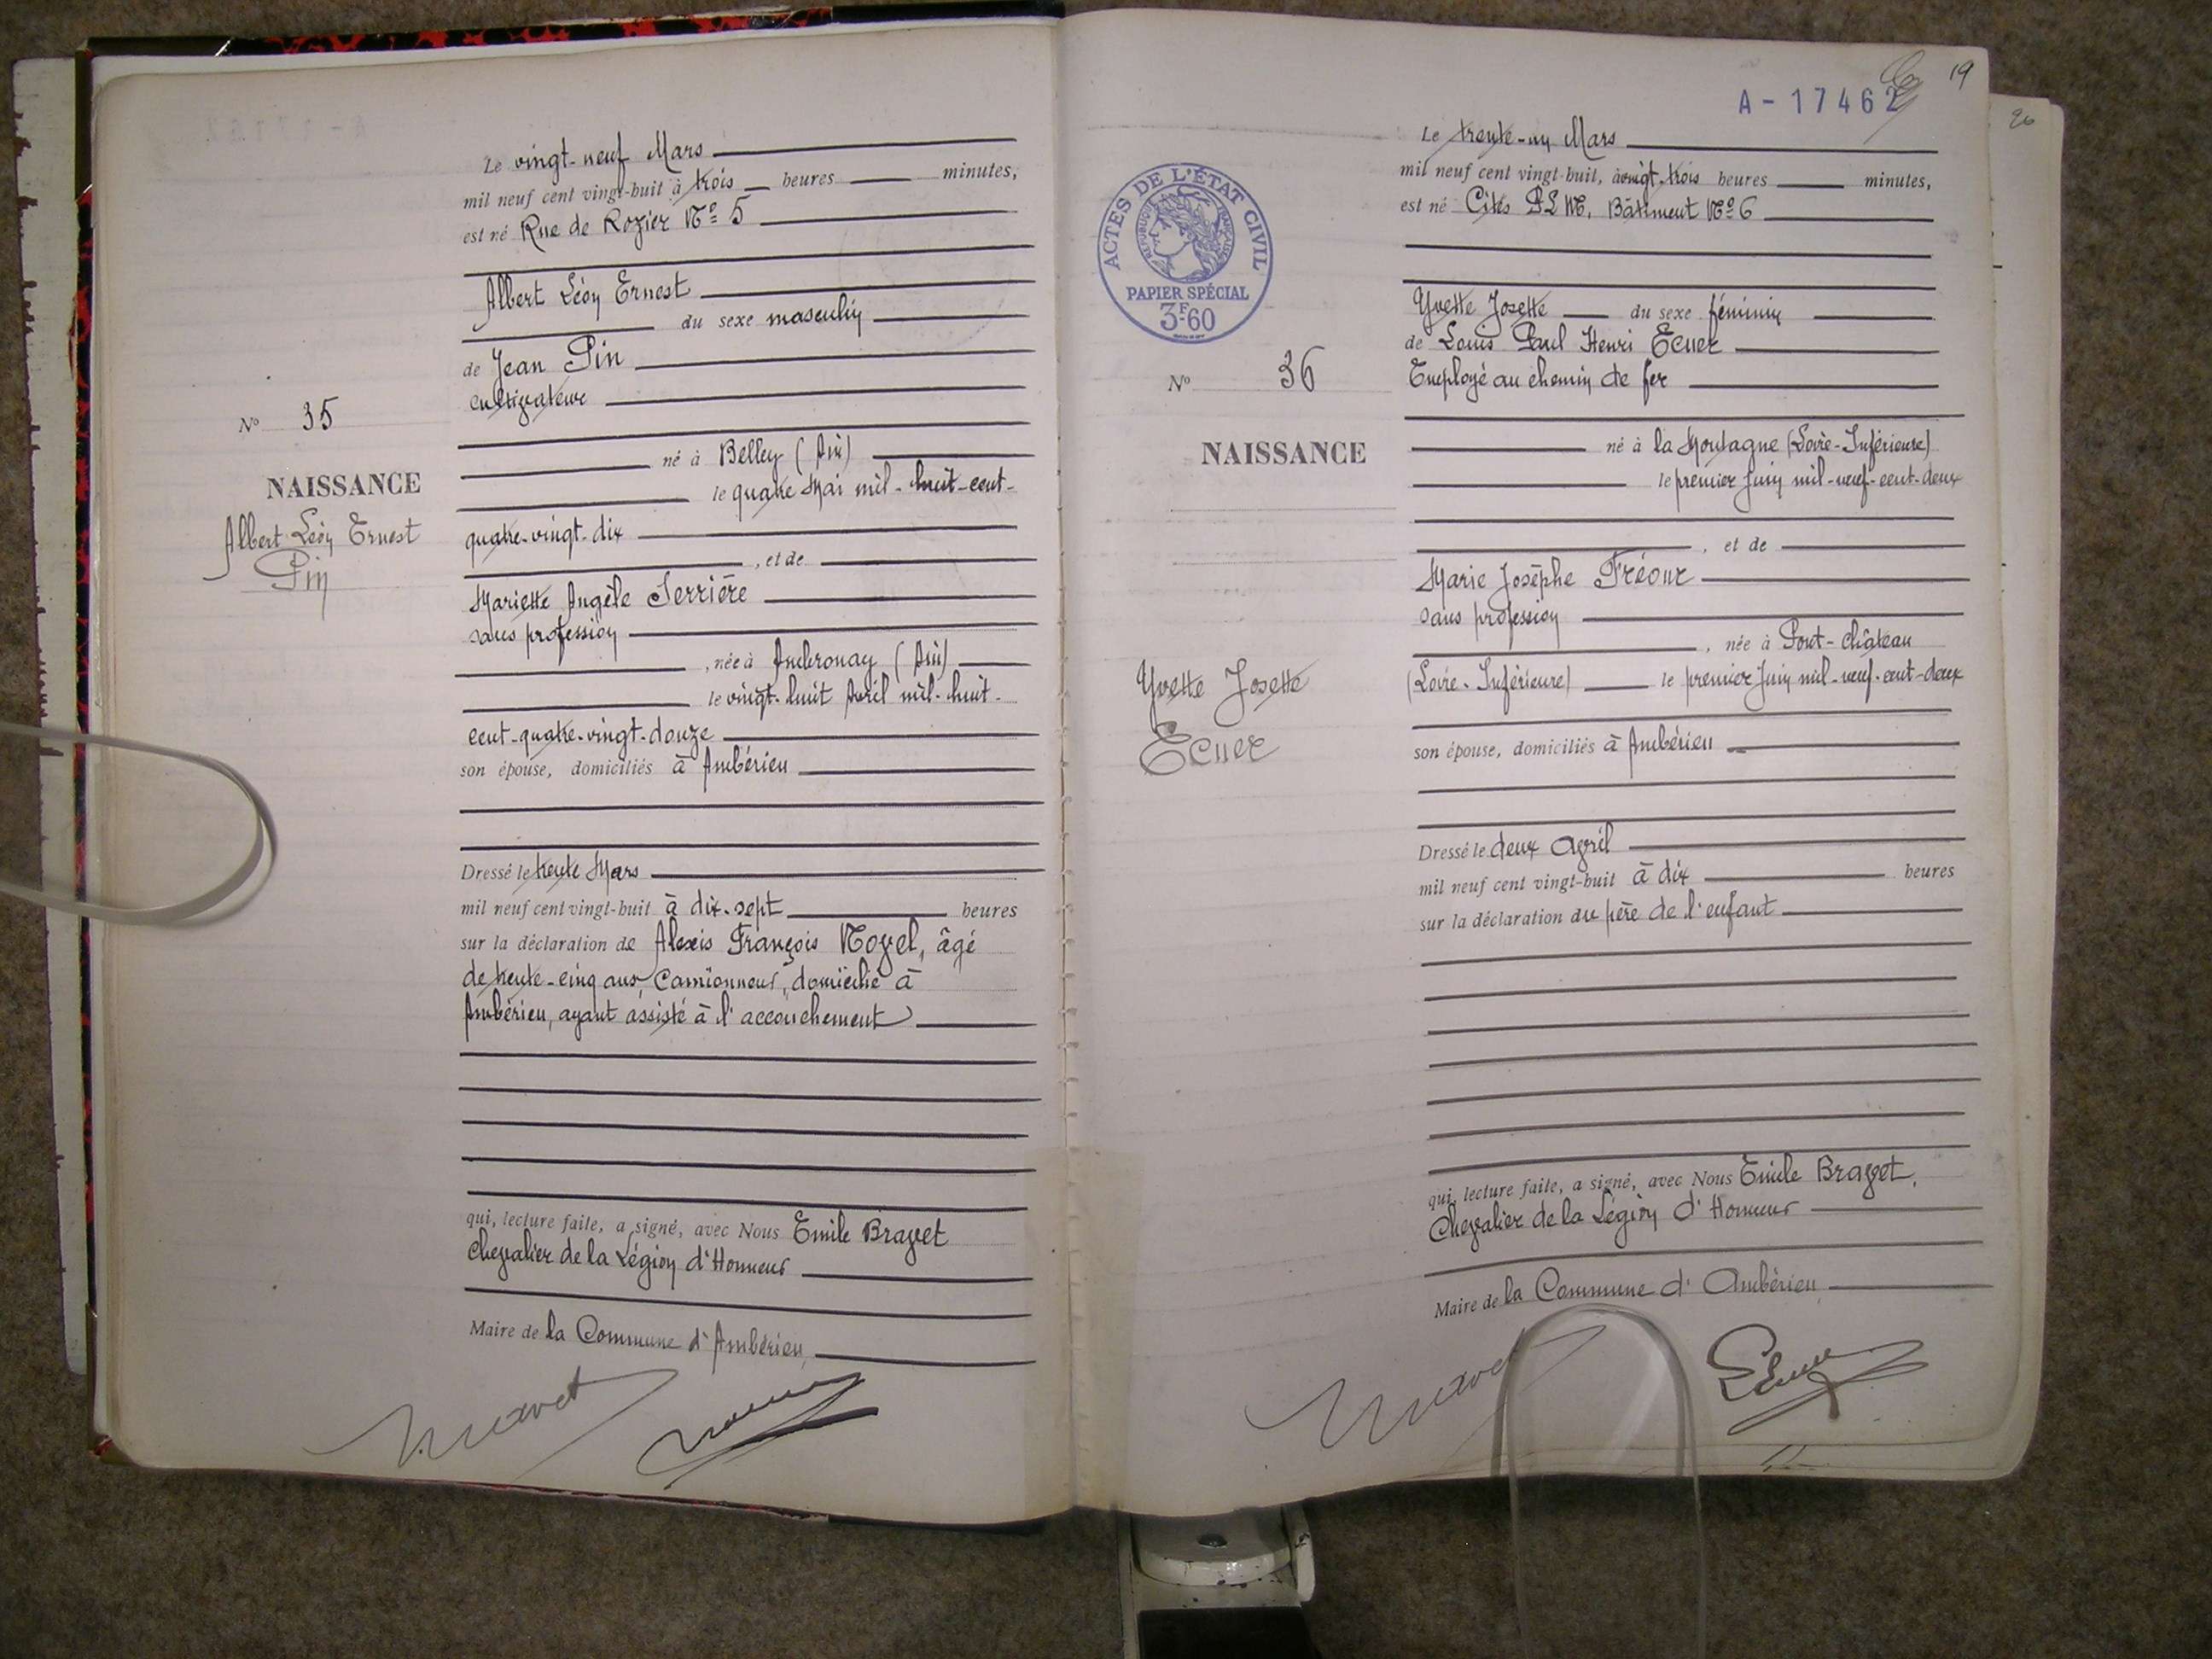 Le vingt-neuf Mars
mil neuf cent vingt-huit à trois heures minutes,
est né Rue de Rozier N° 5
Albert Léon Ernest
du sexe masculin
de Jean Pin
cultivateur
N° 35
né à Belley (Ain)
NAISSANCE
le quatre Mai mil-huit-cent-
Albert Léon Ernest
Pin
quatre-vingt-dix
, et de
Mariette Angèle Serrière
sans profession
, née à Ambronay (Ain)
le vingt-huit Avril mil-huit-
cent-quatre-vingt-douze
son épouse, domiciliés à Ambérieu
Dressé le trente Mars
mil neuf cent vingt-huit à dix-sept heures
sur la déclaration de Alexis François Noyel, âgé
de trente-cinq ans, Camionneur, domicilié à
Ambérieu, ayant assisté à l'accouchement
qui, lecture faite, a signé, avec Nous Emile Bravet
Chevalier de la Légion d'Honneur
Maire de la Commune d'Ambérieu,
Bravet
19
A-17462
26
Le trente-un Mars
mil neuf cent vingt-huit, à vingt-trois heures minutes,
est né Cités PLM, Bâtiment N° 6
ACTES DE L'ÉTAT CIVIL
RÉPUBLIQUE FRANÇAISE
PAPIER SPÉCIAL
3F-60
Yvette Josette du sexe féminin
de Louis Paul Henri Ecuer
N° 36
Employé au chemin de fer
NAISSANCE
né à la Montagne (Loire-Inférieure)
le premier Juin mil-neuf-cent-deux
, et de
Marie Josèphe Fréour
sans profession
, née à Pont-Château
Yvette Josette
Ecuer
(Loire-Inférieure) le premier Juin mil-neuf-cent-deux
son épouse, domiciliés à Ambérieu
Dressé le deux Avril
mil neuf cent vingt-huit à dix heures
sur la déclaration du père de l'enfant
qui, lecture faite, a signé, avec Nous Emile Bravet,
Chevalier de la Légion d'Honneur
Maire de la Commune d'Ambérieu,
Bravet